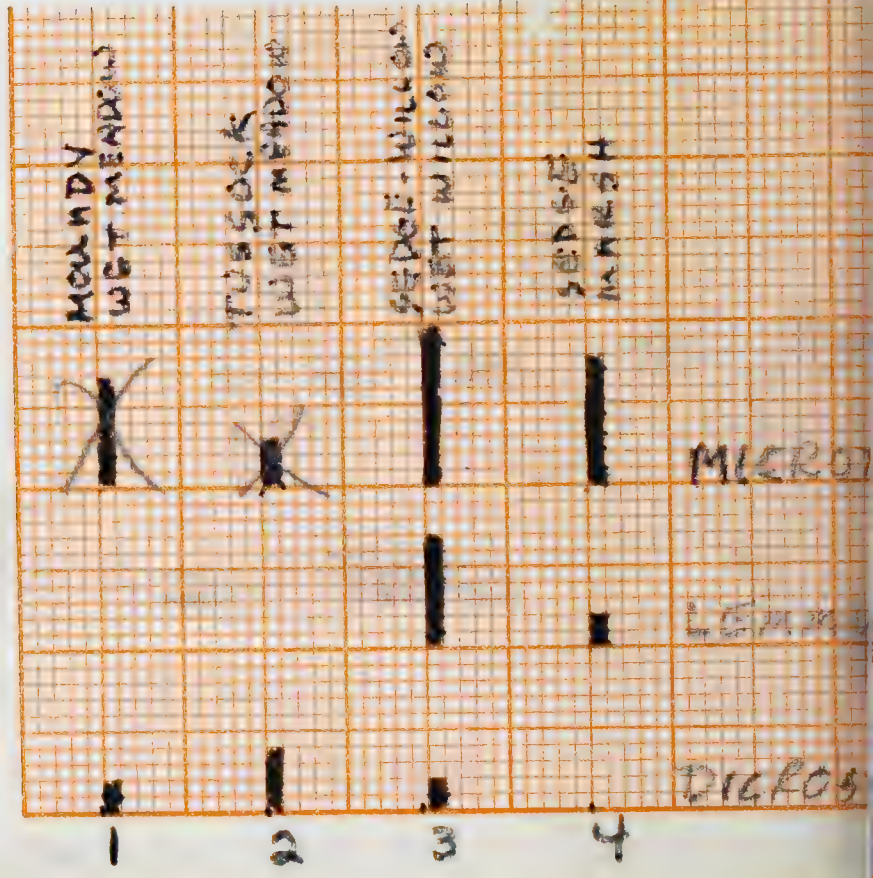 MOUNDY
WET MEADOW
TUSSOCK
WET MEADOW
SEDGE-WILLOW
WET WILLOW
SEDGE
MARSH
MICROT
LEMM
DICROS
1 2 3 4